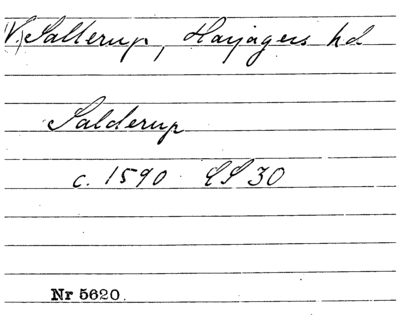 (V.) Sallerup, Harjagers hd
Salderup
c. 1590 LS 30
Nr 5620.